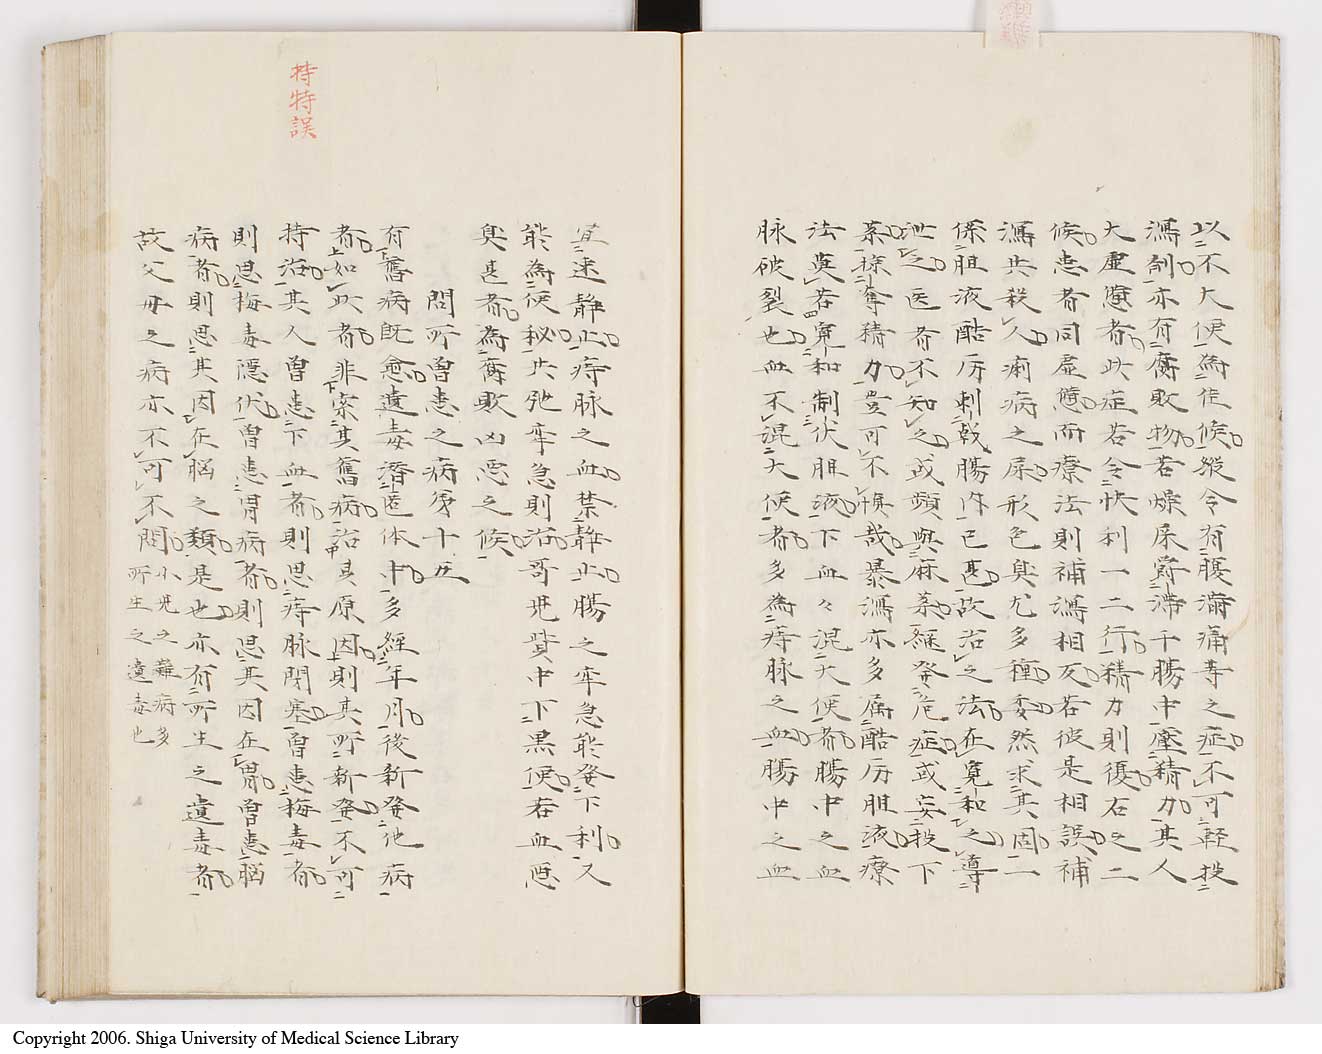 以不大便為佳候縱令有腹滿痛等之症不可輕投
瀉劑亦有腐敗物若燥屎欝滯于腸中壓精力其人
大虛憊者此症若令快利一二行精力則復右之二
候患者同虛憊而療法則補瀉相反若彼是相誤補
瀉共殺人痢病之屎形色臭尤多種委然求其固二
係胆液酷厉刺戟腸件已甚故治之法在寬和之導
泄之医者不知之或頻與麻藥經發危症或妄投下
藥掠奪精力豈可不慎哉暴瀉亦多属酷厉胆液療
法莫若寬和制伏胆液下血々混大便者腸中之血
脉破裂也血不混大便者多為痔脉之血腸中之血
宜速靜止痔脉之血禁靜止腸之牢急能發下利又
能為便秘共弛牢急則治哥児貲中下黑便若血悪
臭甚者為腐敗凶悪之候
問所曽患之病第十五
有舊病既愈遺毒潛匿体中多經年月後新發他病
者如此者非宗其舊病治其原因則其所新發不可
持治其人曽患下血者則思痔脉閉塞曽患梅毒者
則思梅毒隱伏曽患胃病者則思其因在胃曽患脳
病者則思其因在脳之類是也亦有所生之遺毒者
故父母之病亦不可不問
小児之難病多
所生之遺毒也
持特誤
Copyright 2006. Shiga University of Medical Science Library